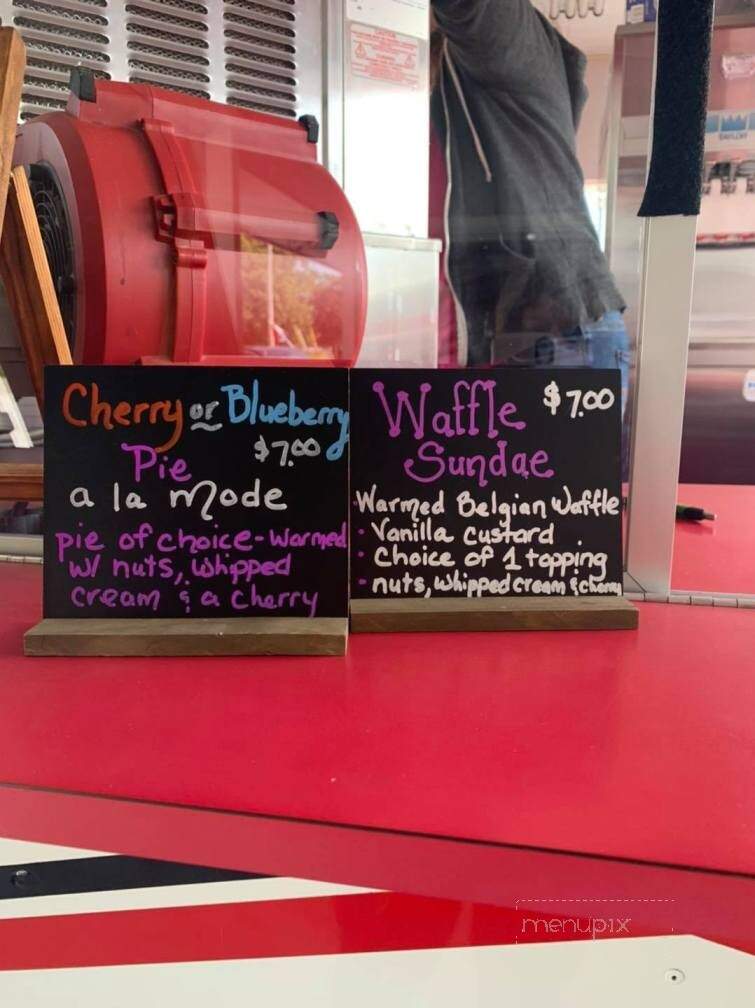 Cherry or Blueberry
$7.00
Pie
a la mode
pie of choice - warmed
w/ nuts, whipped
cream & a cherry
Waffle $7.00
Sundae
Warmed Belgian Waffle
· Vanilla Custard
· Choice of 1 topping
· nuts, whipped cream & cherry
menupix